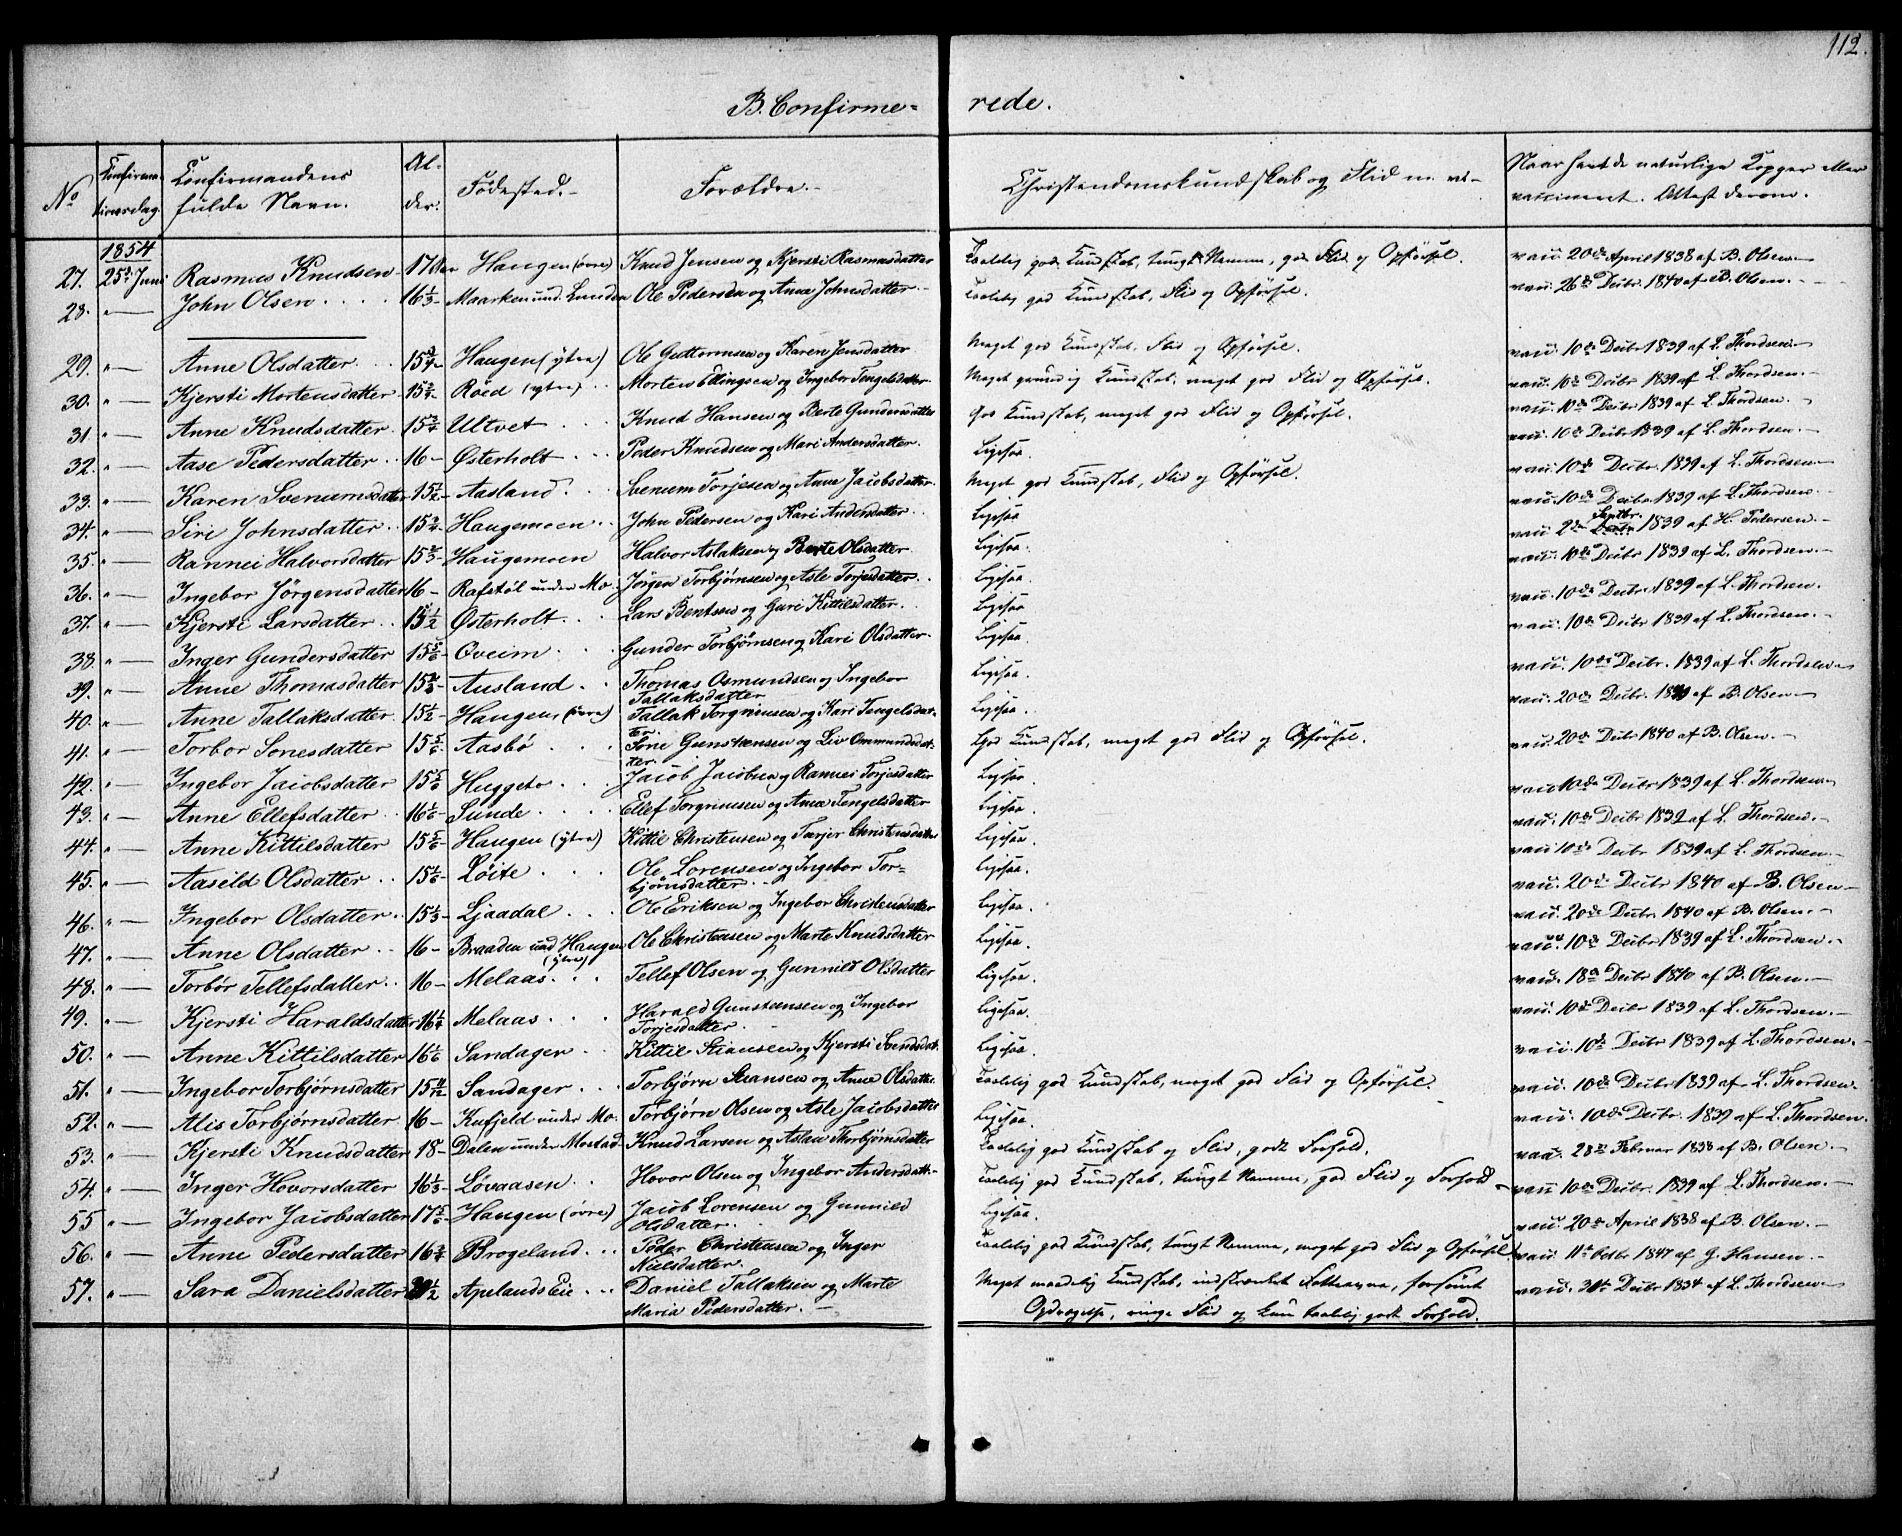 112.
B. Confirme- rede.
No Confirmationsdag. Confirmandens fulde Navn. Alder. Fødested. Forældre. Christendomskundskab og Flid m. v. Naar havt de naturlige Kopper eller vaccineret. Attest derom.
1854
27. 25de Juni Rasmus Knudsen 17 Haugen (øvre) Knud Jensen og Kjersti Rasmusdatter Taalelig god Kundskab, tungt Nemme, god Flid og Opførsel. vacc. 20de April 1838 af B. Olsen
28. " John Olsen 16 1/3 Maarken und. Lunden Ole Pedersen og Anne Johnsdatter Taalelig god Kundskab, Flid og Opførsel. vacc. 26de Decbr. 1840 af B. Olsen
29. " Anne Olsdatter 15 3/4 Haugen (ytre) Ole Guttormsen og Karen Jensdatter Meget god Kundskab, Flid og Opførsel. vacc. 10de Decbr 1839 af L. Thordsen
30. " Kjersti Mortensdatter 15 3/4 Røed (ytre) Morten Ellingsen og Ingebor Tengelsdatter Meget grundig Kundskab, meget god Flid og Opførsel. vacc. 10de Decbr 1839 af L. Thordsen
31. " Anne Knudsdatter 15 3/4 Ultvet Knud Hansen og Berte Gundersdatter God Kundskab, meget god Flid og Opførsel. vacc. 10de Decbr 1839 af L. Thordsen
32. " Aase Pedersdatter 16 Østerholt Peder Knudsen og Mari Andersdatter Ligesaa. vacc. 10de Decbr 1839 af L. Thordsen
33. " Karen Svenumsdatter 15 1/2 Aasland Svenum Torjesen og Anne Jacobsdatter Meget god Kundskab, Flid og Opførsel. vacc. 10de Decbr. 1839 af L. Thordsen
34. " Siri Johnsdatter 15 3/4 Haugemoen John Pedersen og Kari Andersdatter Ligesaa vacc. 10de Decbr 1839 af L. Thordsen
35. " Rannei Halvorsdatter 15 2/3 Haugemoen Halvor Aslaksen og Berte Olsdatter Ligesaa. vacc. 2de Septbr. 1839 af H. Pedersen
36. " Ingebor Jörgensdatter 16 Rafstöl under Mo Jörgen Torbjørnsen og Asle Torjesdatter Ligesaa. vacc. 10de Decbr 1839 af L. Thordsen
37. " Kjersti Larsdatter 15 1/2 Østerholt Lars Bentsen og Guri Kittilsdatter Ligesaa. vacc. 10de Decbr. 1839 af L. Thordsen
38. " Inger Gundersdatter 15 5/6 Oveim Gunder Torbjørnsen og Kari Olsdatter Ligesaa. vacc. 10de Decbr 1839 af L. Thordsen
39. " Anne Thomasdatter 15 2/3 Ausland Thomas Osmundsen og Ingebor Tallaksdatter Ligesaa. vacc. 10de Decbr. 1839 af L. Thordsen
40. " Anne Tallaksdatter 15 1/2 Haugen (øvre) Tallak Torgrimsen og Kari Tengelsdatter. Ligesaa. vacc. 20de Decbr. 1840 af B. Olsen
41. " Torbor Tonesdatter 15 5/6 Aasbö Tone Gunstensen og Liv Ommundsdatter. God Kundskab, meget god Flid og Opførsel. vacc. 20de Decbr 1840 af B. Olsen
42. " Ingebor Jacobsdatter 15 5/6 Huggeto Jacob Jacobsen og Rannei Torjesdatter Ligesaa vacc. 10de Decbr 1839 af L. Thordsen
43. " Anne Ellefsdatter 16 1/6 Sunde Ellef Torgrimsen og Anne Tengelsdatter Ligesaa. vacc. 10de Decbr 1839 af L. Thordsen
44. " Anne Kittilsdatter 15 5/6 Haugen (ytre) Kittil Christensen og Torjer Christensdatter Ligesaa. vacc. 10de Decbr 1839 af L. Thordsen
45. " Aasild Olsdatter 15 1/6 Løite Ole Lorensen og Ingebor Torbjørnsdatter Ligesaa. vacc. 20de Decbr 1840 af B. Olsen
46. " Ingebor Olsdatter 15 1/3 Ljaadal Ole Eriksen og Ingebor Christensdatter Ligesaa. vacc. 20de Decbr. 1840 af B. Olsen
47. " Anne Olsdatter 16 Braaden und Haugen (ytre) Ole Christensen og Marte Knudsdatter Ligesaa. vacc. 10de Decbr 1839 af L. Thordsen
48. " Torbør Tellefsdatter 16 Melaas Tellef Olsen og Gunnild Olsdatter Ligesaa. vacc. 18de Decbr 1840 af B. Olsen
49. " Kjersti Haraldsdatter 16 1/4 Melaas Harald Gunstensen og Ingebor Torjesdatter Ligesaa. vacc. 10de Decbr 1839 af L. Thordsen
50. " Anne Kittilsdatter 16 1/6 Sandager Kittil Stiansen og Kjersti Svendsdat. Ligesaa. vacc. 10de Decbr 1839 af L. Thordsen
51. " Ingebor Torbjørnsdatter 15 11/12 Sandager Torbjørn Stiansen og Anne Olsdatter Taalelig god Kundskab, meget god Flid og Opførsel. vacc. 10de Decbr 1839 af L. Thordsen
52. " Alis Torbjørnsdatter 16 Kufjeld under Mo Torbjørn Olsen og Asle Jacobsdatter Ligesaa. vacc. 10de Decbr. 1839 af L. Thordsen.
53. " Kjersti Knudsdatter 18 Dalen under Mostad Knud Larsen og Aslau Thorbjørnsdatter Taalelig god Kundskab og Flid, godt Forhold. vacc. 28de Februar 1838 af B. Olsen
54. " Inger Hovorsdatter 16 1/3 Løvaasen Hovor Olsen og Ingebor Andersdatter Taalelig god Kundskab, tungt Nemme, god Flid og Forhold vacc. 10de Decbr. 1839 af L. Thordsen
55 " Ingebor Jacobsdatter 17 5/6 Haugen (øvre) Jacob Lorensen og Gunnild Olsdatter Ligesaa. vacc. 20de April 1838 af B. Olsen
56. " Anne Pedersdatter 16 3/4 Brogeland Peder Christensen og Inger Nielsdatter. Taalelig god Kundskab, tungt Nemme, meget god Flid og Opførsel vacc. 11te Octbr 1847 af G. Hansen
57. " Sara Danielsdatter 1/2 Apelands Eie Daniel Tallaksen og Marte Maria Pedersdatter. Meget maadelig Kundskab, indskrænket Fatteevne, forsømt Opdragelse, ringe Flid og kun taalelig godt Forhold. vacc. Decbr 1834 af L. Thordsen